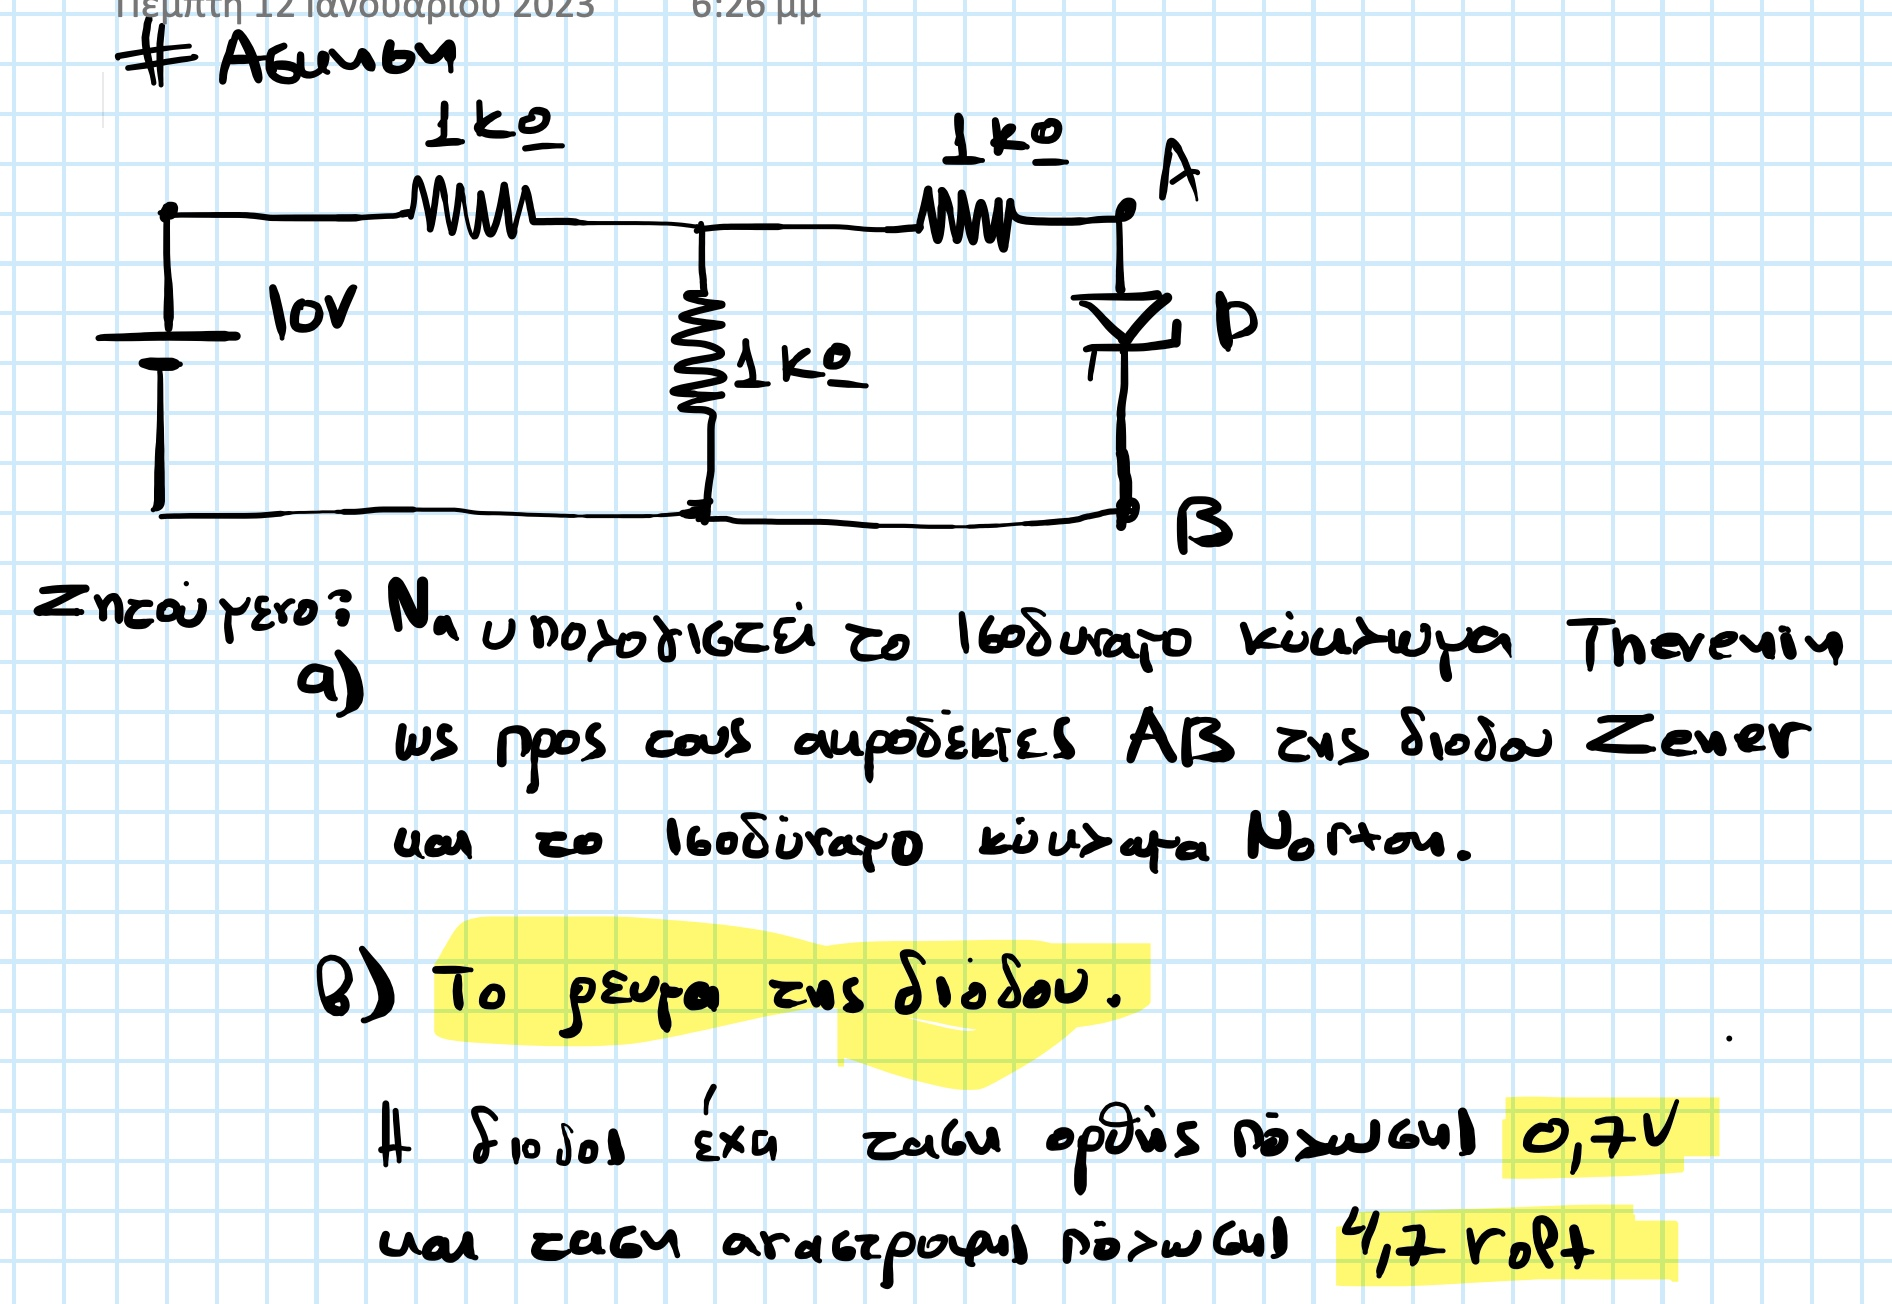 Πέμπτη 12 Ιανουαρίου 2023 6:26 μμ
# Ασκηση
1kΩ 1kΩ A
10V 1kΩ D
B
Ζητούμενο: Να υπολογιστεί το Ισοδυναμο κύκλωμα Thevenin
α)
ως προς τους ακροδέκτες AB της διοδου Zener
και το Ισοδύναμο κύκλωμα Norton.
β) Το ρευμα της διόδου.
Η διοδος έχει ταση ορθής πόλωσης 0,7V
και ταση αναστροφης πόλωσης 4,7 volt